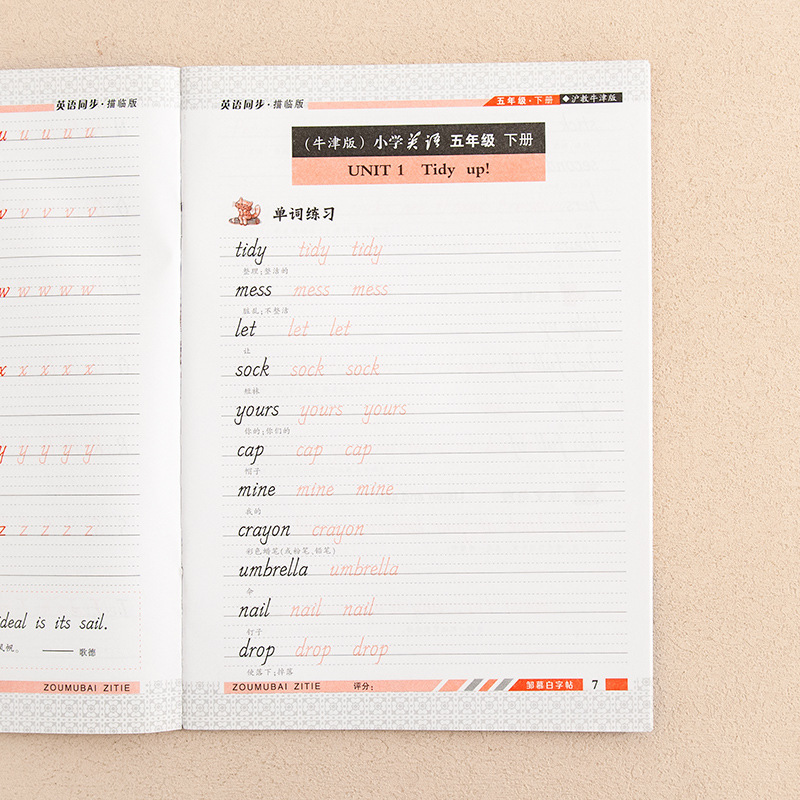 英语同步·描临版
u u u u u
v v v v v
w w w w w
x x x x x
y y y y y
z z z z z
ideal is its sail.
风帆。 —— 歌德
ZOUMUBAI ZITIE
英语同步·描临版 五年级·下册 ◆沪教牛津版
(牛津版) 小学英语 五年级 下册
UNIT 1 Tidy up!
单词练习
tidy tidy tidy
整理;整洁的
mess mess mess
脏乱;不整洁
let let let
让
sock sock sock
短袜
yours yours yours
你的;你们的
cap cap cap
帽子
mine mine mine
我的
crayon crayon
彩色蜡笔(或粉笔、铅笔)
umbrella umbrella
伞
nail nail nail
钉子
drop drop drop
使落下;掉落
ZOUMUBAI ZITIE 评分: 邹慕白字帖 7